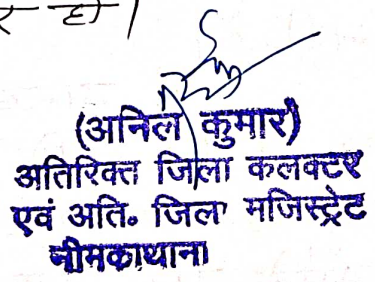 र हो।
(अनिल कुमार)
अतिरिक्त जिला कलक्टर
एवं अति॰ जिला मजिस्ट्रेट
नीमकाथाना